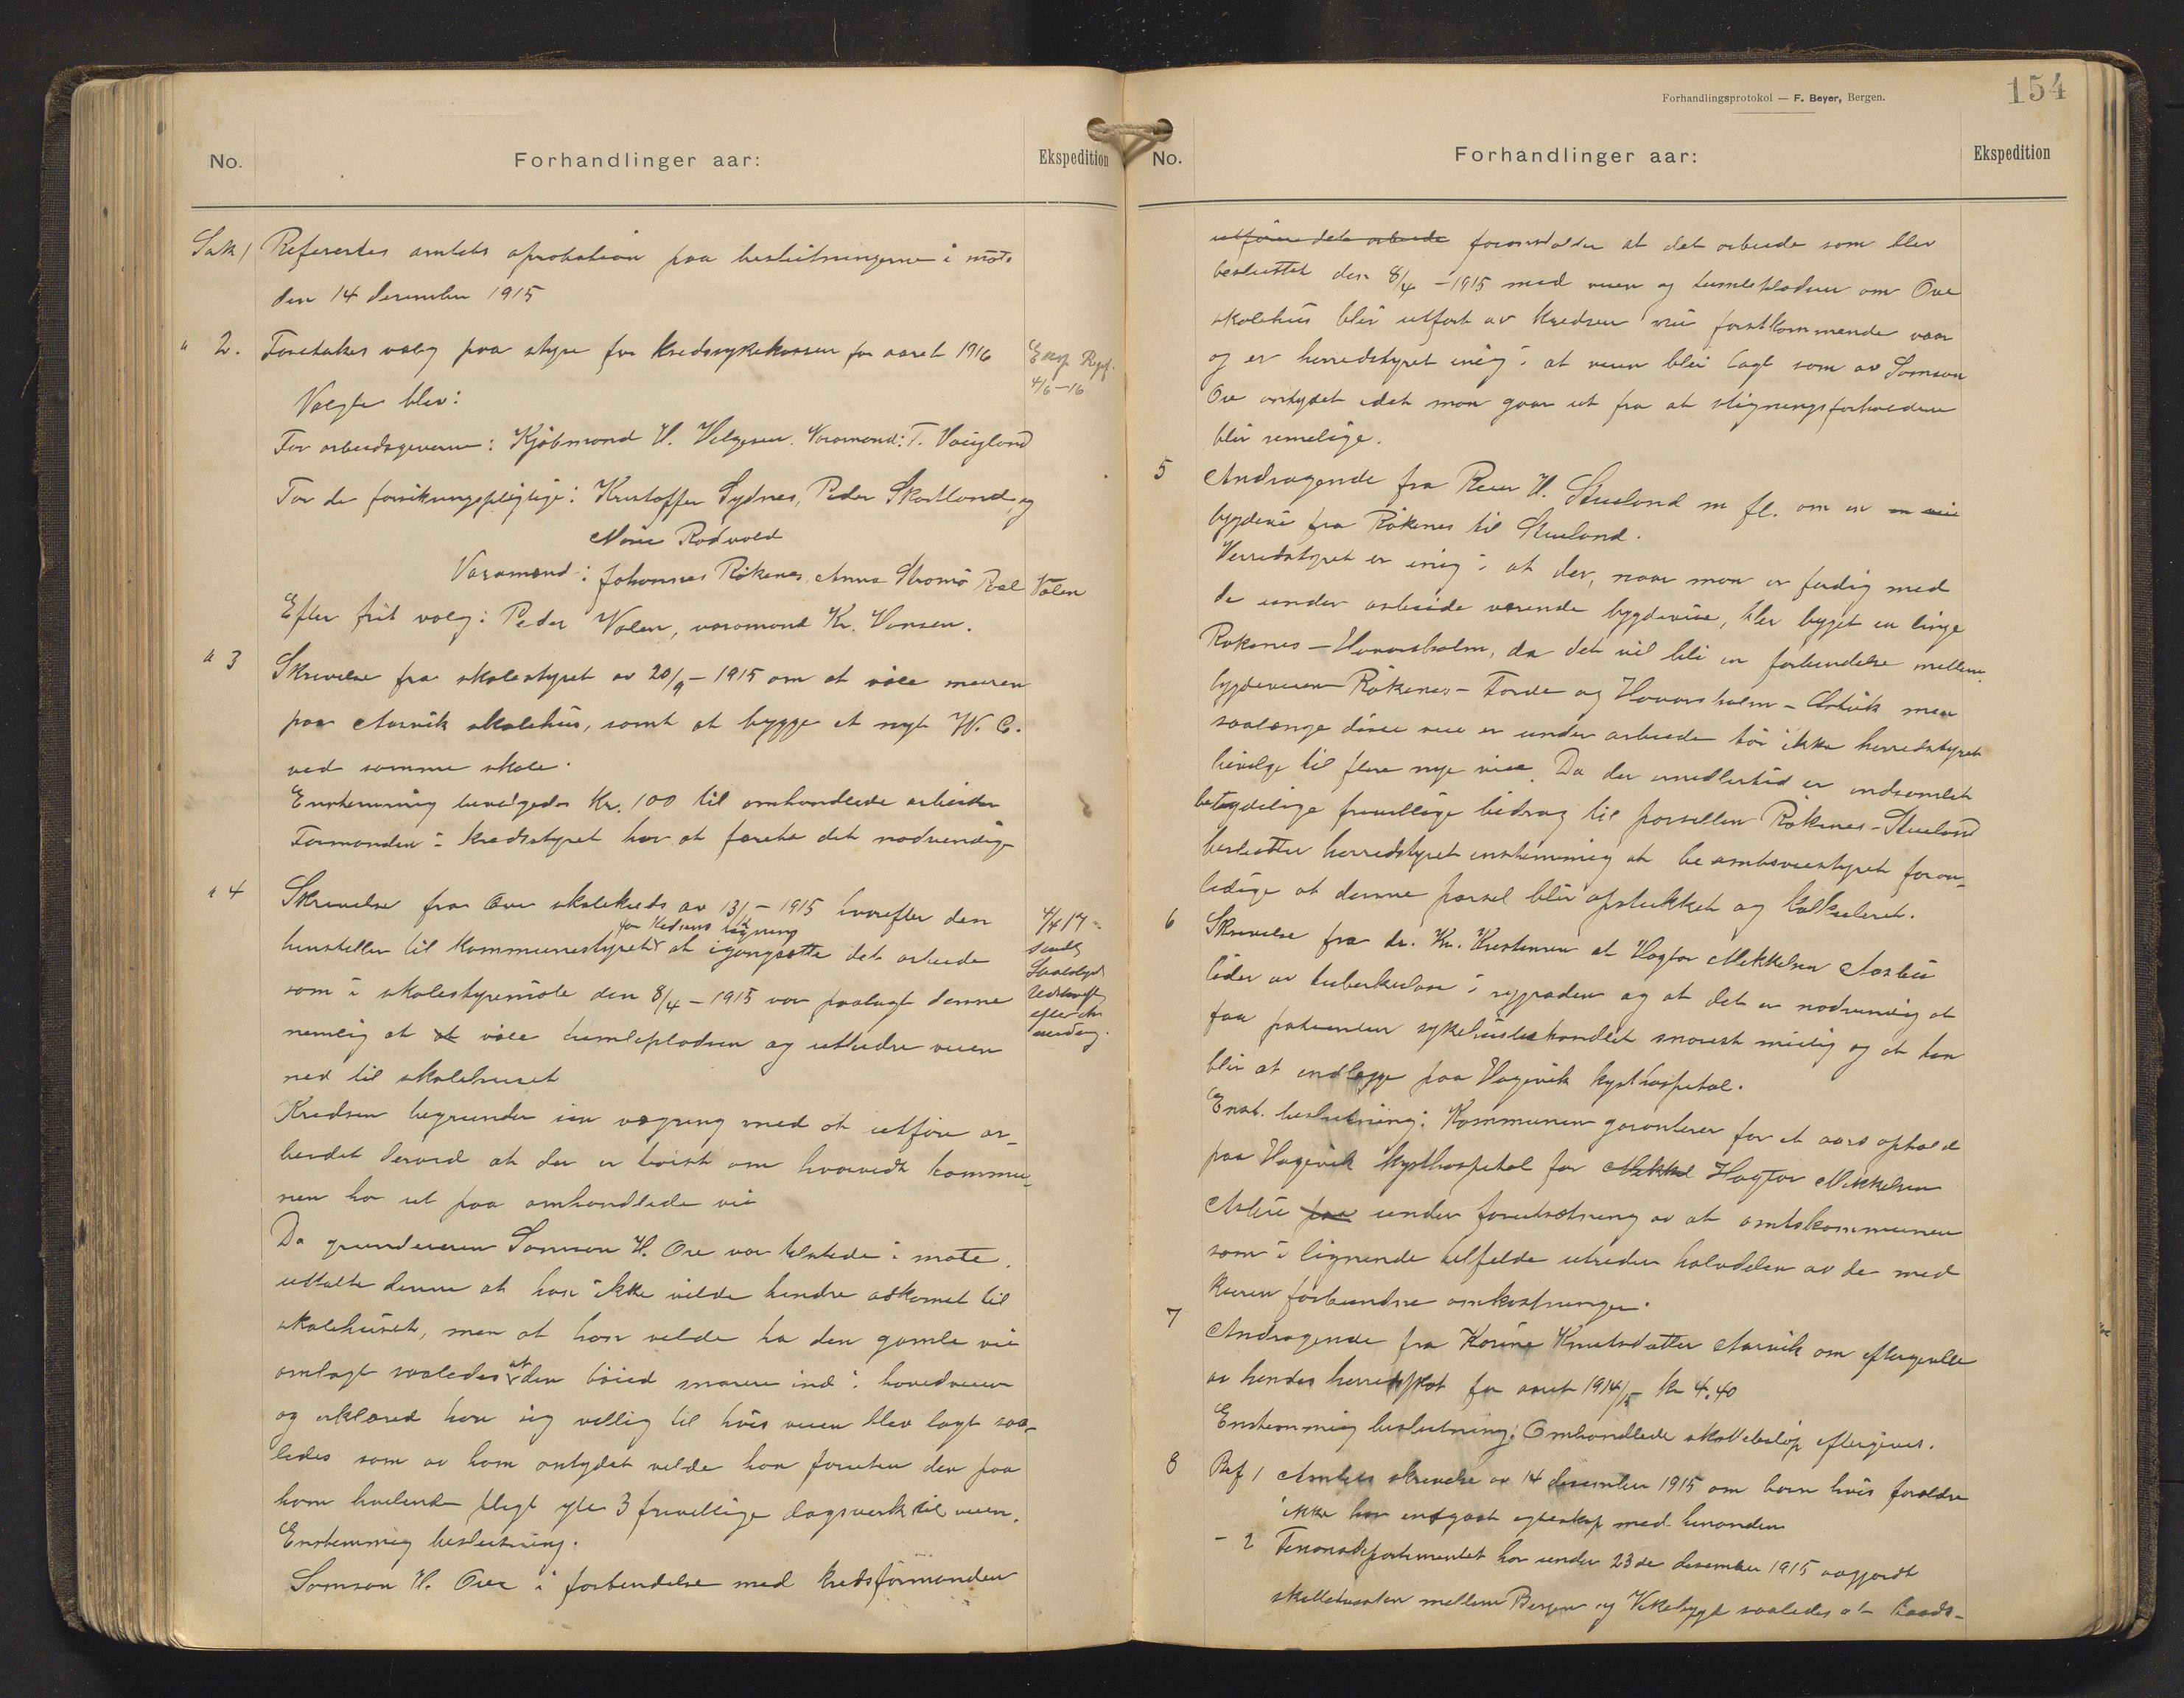 No.
Forhandlinger aar:
Ekspedition
Sak 1 Referertes amtets aprobation paa beslutningerne i møte
den 14 desember 1915
" 2. Foretakes valg paa styre for kredssykekassen for aaret 1916
Valgte blev:
For arbeidsgiverne: Kjøbmand H. Helgesen. Varamand: T. Vaigland
For de forsikringspligtige: Kristoffer Sydnes, Peder Skartland, og
Marie Rødvold
Varamænd: Johannes Røkenes, Anna Strømø Pal Valen
Efter frit valg: Peder Valen, varamand Kr. Hansen.
4/6-16
" 3 Skrivelse fra skolestyret av 20/9 - 1915 om at oile muren
paa Aarvik skolehus, samt at bygge et nyt W. C.
ved samme skole.
Enstemmig bevilgedes Kr. 100 til omhandlede arbeider
Formanden i kredsstyret har at foreta det nødvendige
" 4 Skrivelse fra Øvre skolekreds av 13/ - 1915 hvorefter den
for Kredsens lægning
henstiller til kommunestyret at igangsætte det arbeide
som i skolestyremøte den 8/4 - 1915 var paalagt denne
nemlig at at oile tumlepladsen og utbedre veien
ned til skolehuset
4/4 17
sendt
Kredsen begrunder sin vægring med at utføre ar-
beidet derved at der er tvist om hvorvidt kommu-
nen har ret paa omhandlede vei
Da grundeieren Samson H. Ore var tilstede i møte,
uttalte denne at han ikke vilde hindre atkomst til
skolehuset, men at han vilde ha den gamle vei
omlagt saaledes at den bøied snarere ind i hovedveien
og erklæred han sig villig til hvis veien blev lagt saa-
ledes som av ham antydet vilde han foruten den paa
ham hvilende pligt yte 3 frivillige dagsverk til veien.
Enstemmig beslutning.
Samson H. Ore i forbindelse med kredsformanden
Forhandlingsprotokol — F. Beyer, Bergen.
154
No.
Forhandlinger aar:
Ekspedition
utføre det arbeide foranstalter at det arbeide som blev
besluttet den 8/4 - 1915 med veien og tumlepladsen om Ore
skolehus blir utført av kredsen nu førstkommende vaar
og er herredstyret enig i at veien blir lagt som av Samson
Ore antydet idet man gaar ut fra at stigningsforholdene
blir rimelige.
5 Andragende fra Peder H. Stueland m fl. om en en vei
bygdevei fra Røkenes til Stueland.
Herredstyret er enig i at der, naar man er færdig med
de under arbeide værende bygdeveie, blir bygget en linje
Røkenes - Haavarsholm, da det vil bli en forbindelse mellem
bygdeveien Røkenes - Førde og Haavarsholm - Ølsvik men
saalænge disse veie er under arbeide tør ikke herredstyret
bevilge til flere nye veie. Da der imidlertid er indsamlet
betydelige frivillige bidrag til parsellen Røkenes - Stueland
beslutter herredstyret enstemmig at be amtsveistyret foran-
ledige at denne parsel blir opstukket og kalkuleret.
6 Skrivelse fra dr. Kr. Kristensen at Hagtor Mikkelsen Aasbu
lider av tuberkulose i rygraden og at det er nødvendig at
faa patienten sykehusbehandlet snarest mulig og at han
blir at indlægge paa Hagevik kysthospital.
Enst. beslutning: Kommunen garanterer for et aars ophold
paa Hagevik kysthospital for Mikkel Hagtor Mikkelsen
Asbu paa under forutsætning av at amtskommunen
som i lignende tilfælde utreder halvdelen av de med
kuren forbundne omkostninger.
7 Andragende fra Karine Knutsdatter Aarvik om eftergivelse
av hendes herredskat for aaret 1914/15 kr 4.40
Enstemmig beslutning: Omhandlede skattebeløp eftergives.
8 Ref. 1 Amtets skrivelse av 14 desember 1915 om barn hvis forældre
ikke har indgaat egteskap med hinanden
- 2 Finansdepartementet har under 23de desember 1915 avgjordt
skattetvisten mellem Bergen og Vikebygd saaledes at Raads-